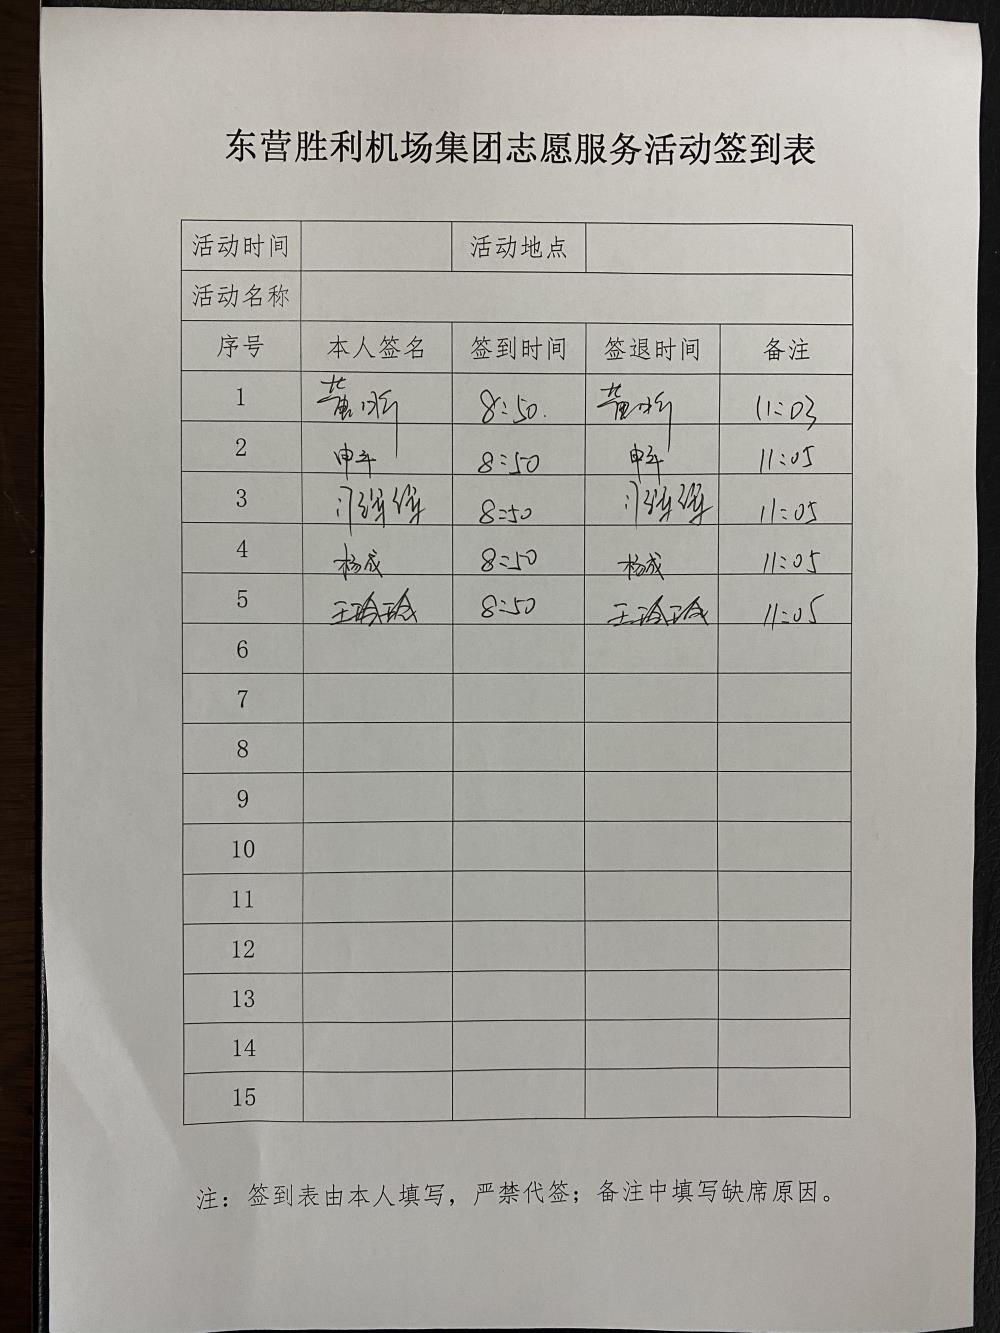 东营胜利机场集团志愿服务活动签到表
活动时间 活动地点
活动名称
序号 本人签名 签到时间 签退时间 备注
1 8:50. 11:03
2 申军 8:50 申军 11:05
3 8:50 11:05
4 杨成 8:50 杨成 11:05
5 王玲玲 8:50 王玲玲 11:05
6
7
8
9
10
11
12
13
14
15
注：签到表由本人填写，严禁代签；备注中填写缺席原因。